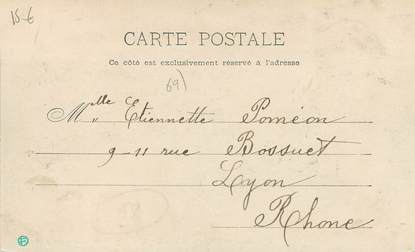 15-6
CARTE POSTALE
Ce côté est exclusivement réservé à l'adresse
69)
Mlle Etiennette Poméon
9-11 rue Bossuet
Lyon
Rhone